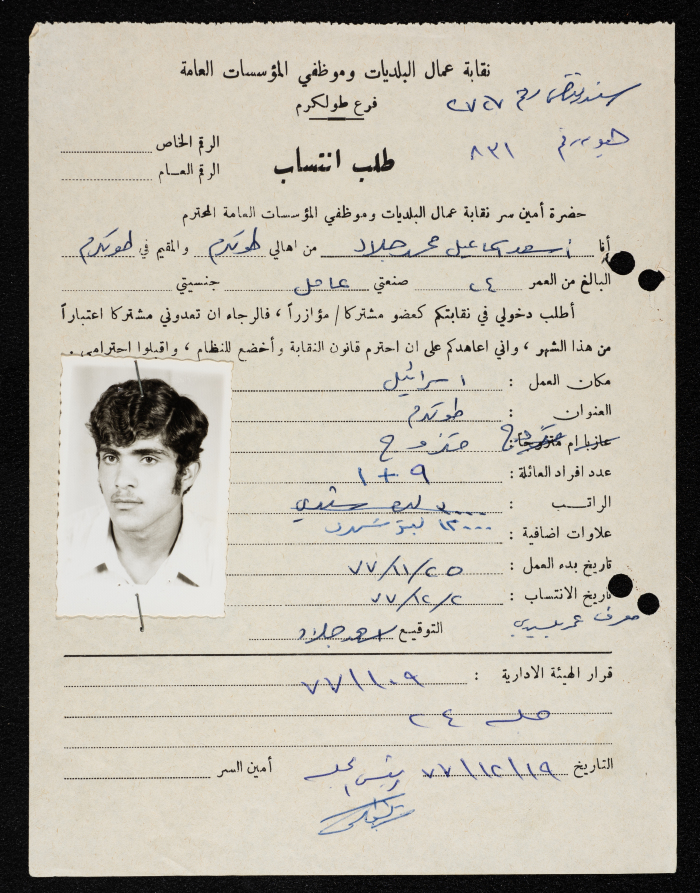 نقابة عمال البلديات وموظفي المؤسسات العامة
فرع طولكرم
رقم ٢٧٢٧
٨٣١
الرقم الخاص
الرقم العام
طلب انتساب
حضرة أمين سر نقابة عمال البلديات وموظفي المؤسسات العامة المحترم
أنا اسعد اسماعيل محمد جلاد من اهالي طولكرم والمقيم في طولكرم
البالغ من العمر ٢٤ صنعتي عامل جنسيتي
أطلب دخولي في نقابتكم كعضو مشتركا / مؤازراً ، فالرجاء ان تعدوني مشتركا اعتباراً
من هذا الشهر ، واني اعاهدكم على ان احترم قانون النقابة وأخضع للنظام ، واقبلوا احترامي .
مكان العمل : اسرائيل
العنوان : طولكرم
عازبا ام متزوجا : متزوج
عدد افراد العائلة : ٩ + ١
الراتب :
علاوات اضافية :
تاريخ بدء العمل : ٧٧/١١/٢٥
تاريخ الانتساب : ٧٧/١٢/٢
التوقيع
قرار الهيئة الادارية : ٧٧/١٠٩
جلسة ٢٤
التاريخ ٧٧/١٢/١٩ أمين السر